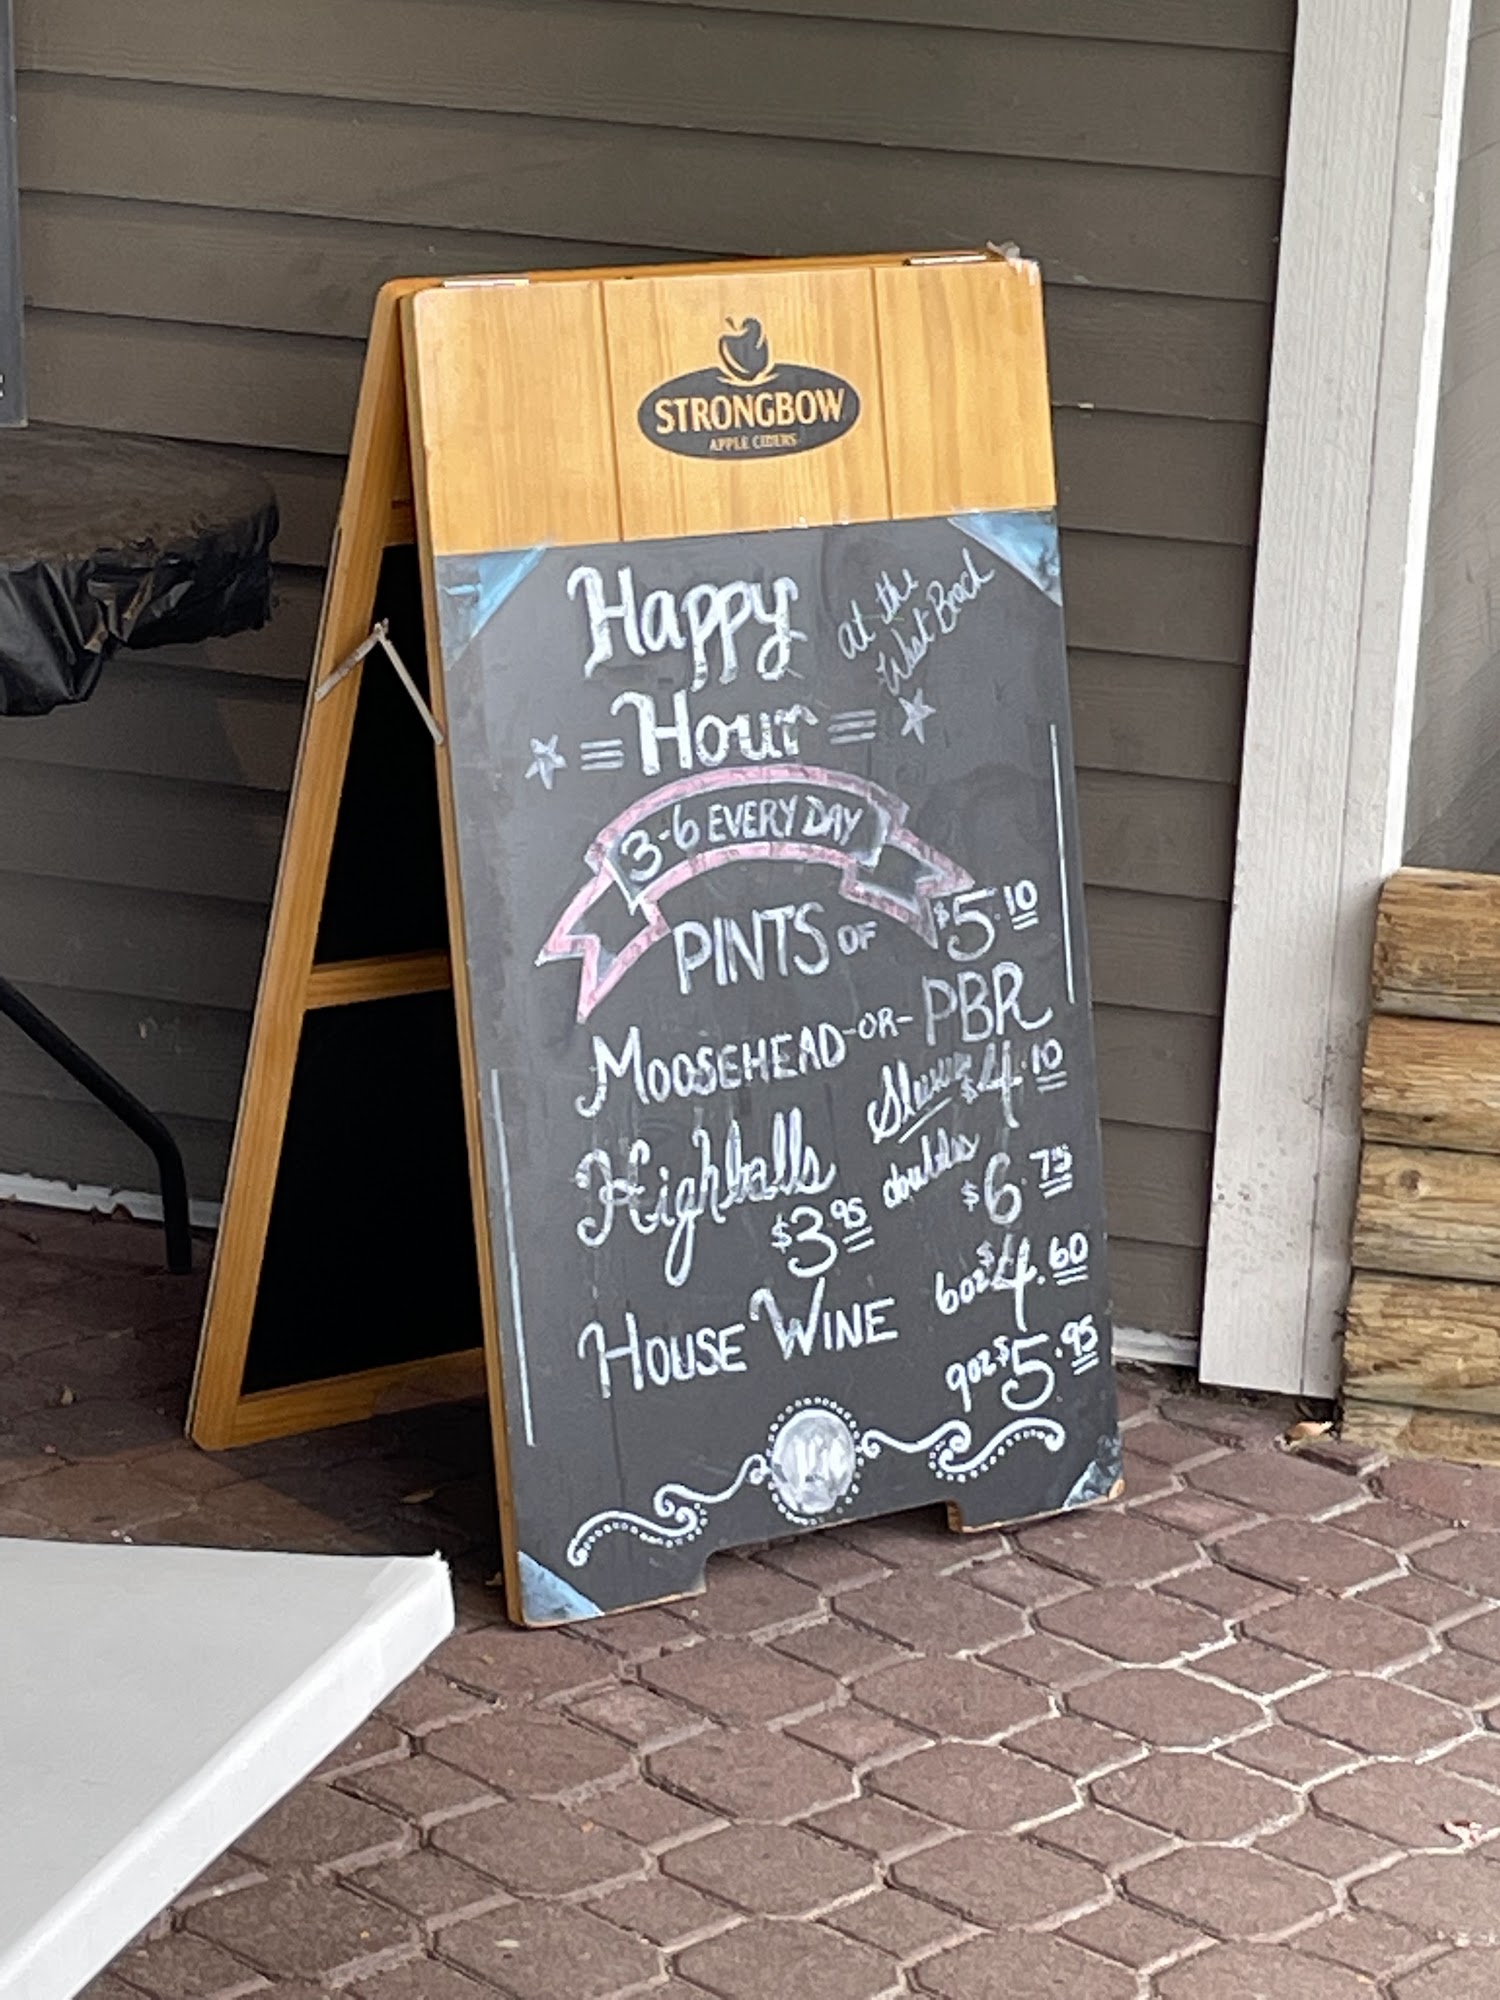 STRONGBOW
APPLE CIDERS
Happy
Hour
at the
What Beach
3-6 EVERY DAY
PINTS OF $5.10
MOOSEHEAD -OR- PBR
Sleeves $4.10
Highballs $3.95
doubles $6.75
HOUSE WINE 6oz $4.60
9oz $5.95